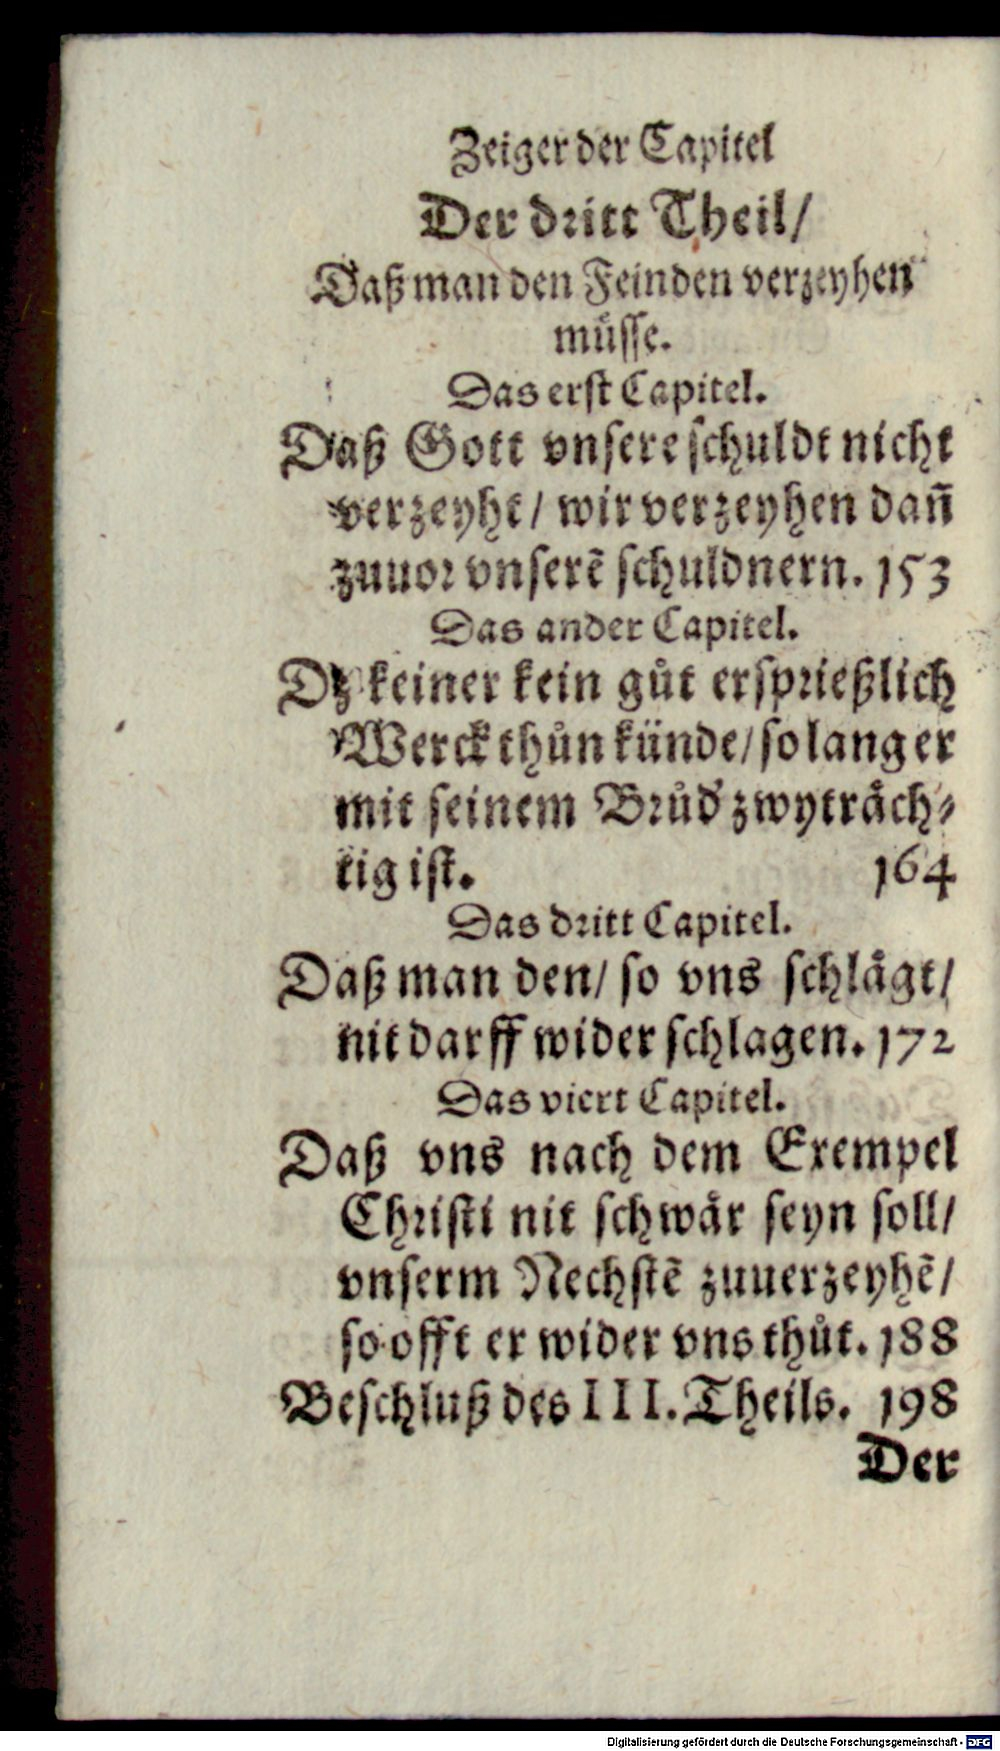 Zeiger der Capitel
Der dritt Theil/
Daß man den Feinden verzeyhen
müsse.
Das erst Capitel.
Daß Gott vnsere schuldt nicht
verzeyht/ wir verzeyhen dañ
zuuor vnserẽ schuldnern. 153
Das ander Capitel.
Dz keiner kein gůt ersprießlich
Werck thůn künde/ so lang er
mit seinem Brůd' zwyträch-
tig ist. 164
Das dritt Capitel.
Daß man den/ so vns schlägt/
nit darff wider schlagen. 172
Das viert Capitel.
Daß vns nach dem Exempel
Christi nit schwär seyn soll/
vnserm Nechstẽ zuuerzeyhẽ/
so offt er wider vns thůt. 188
Beschluß des III. Theils. 198
Der
Digitalisierung gefördert durch die Deutsche Forschungsgemeinschaft - DFG